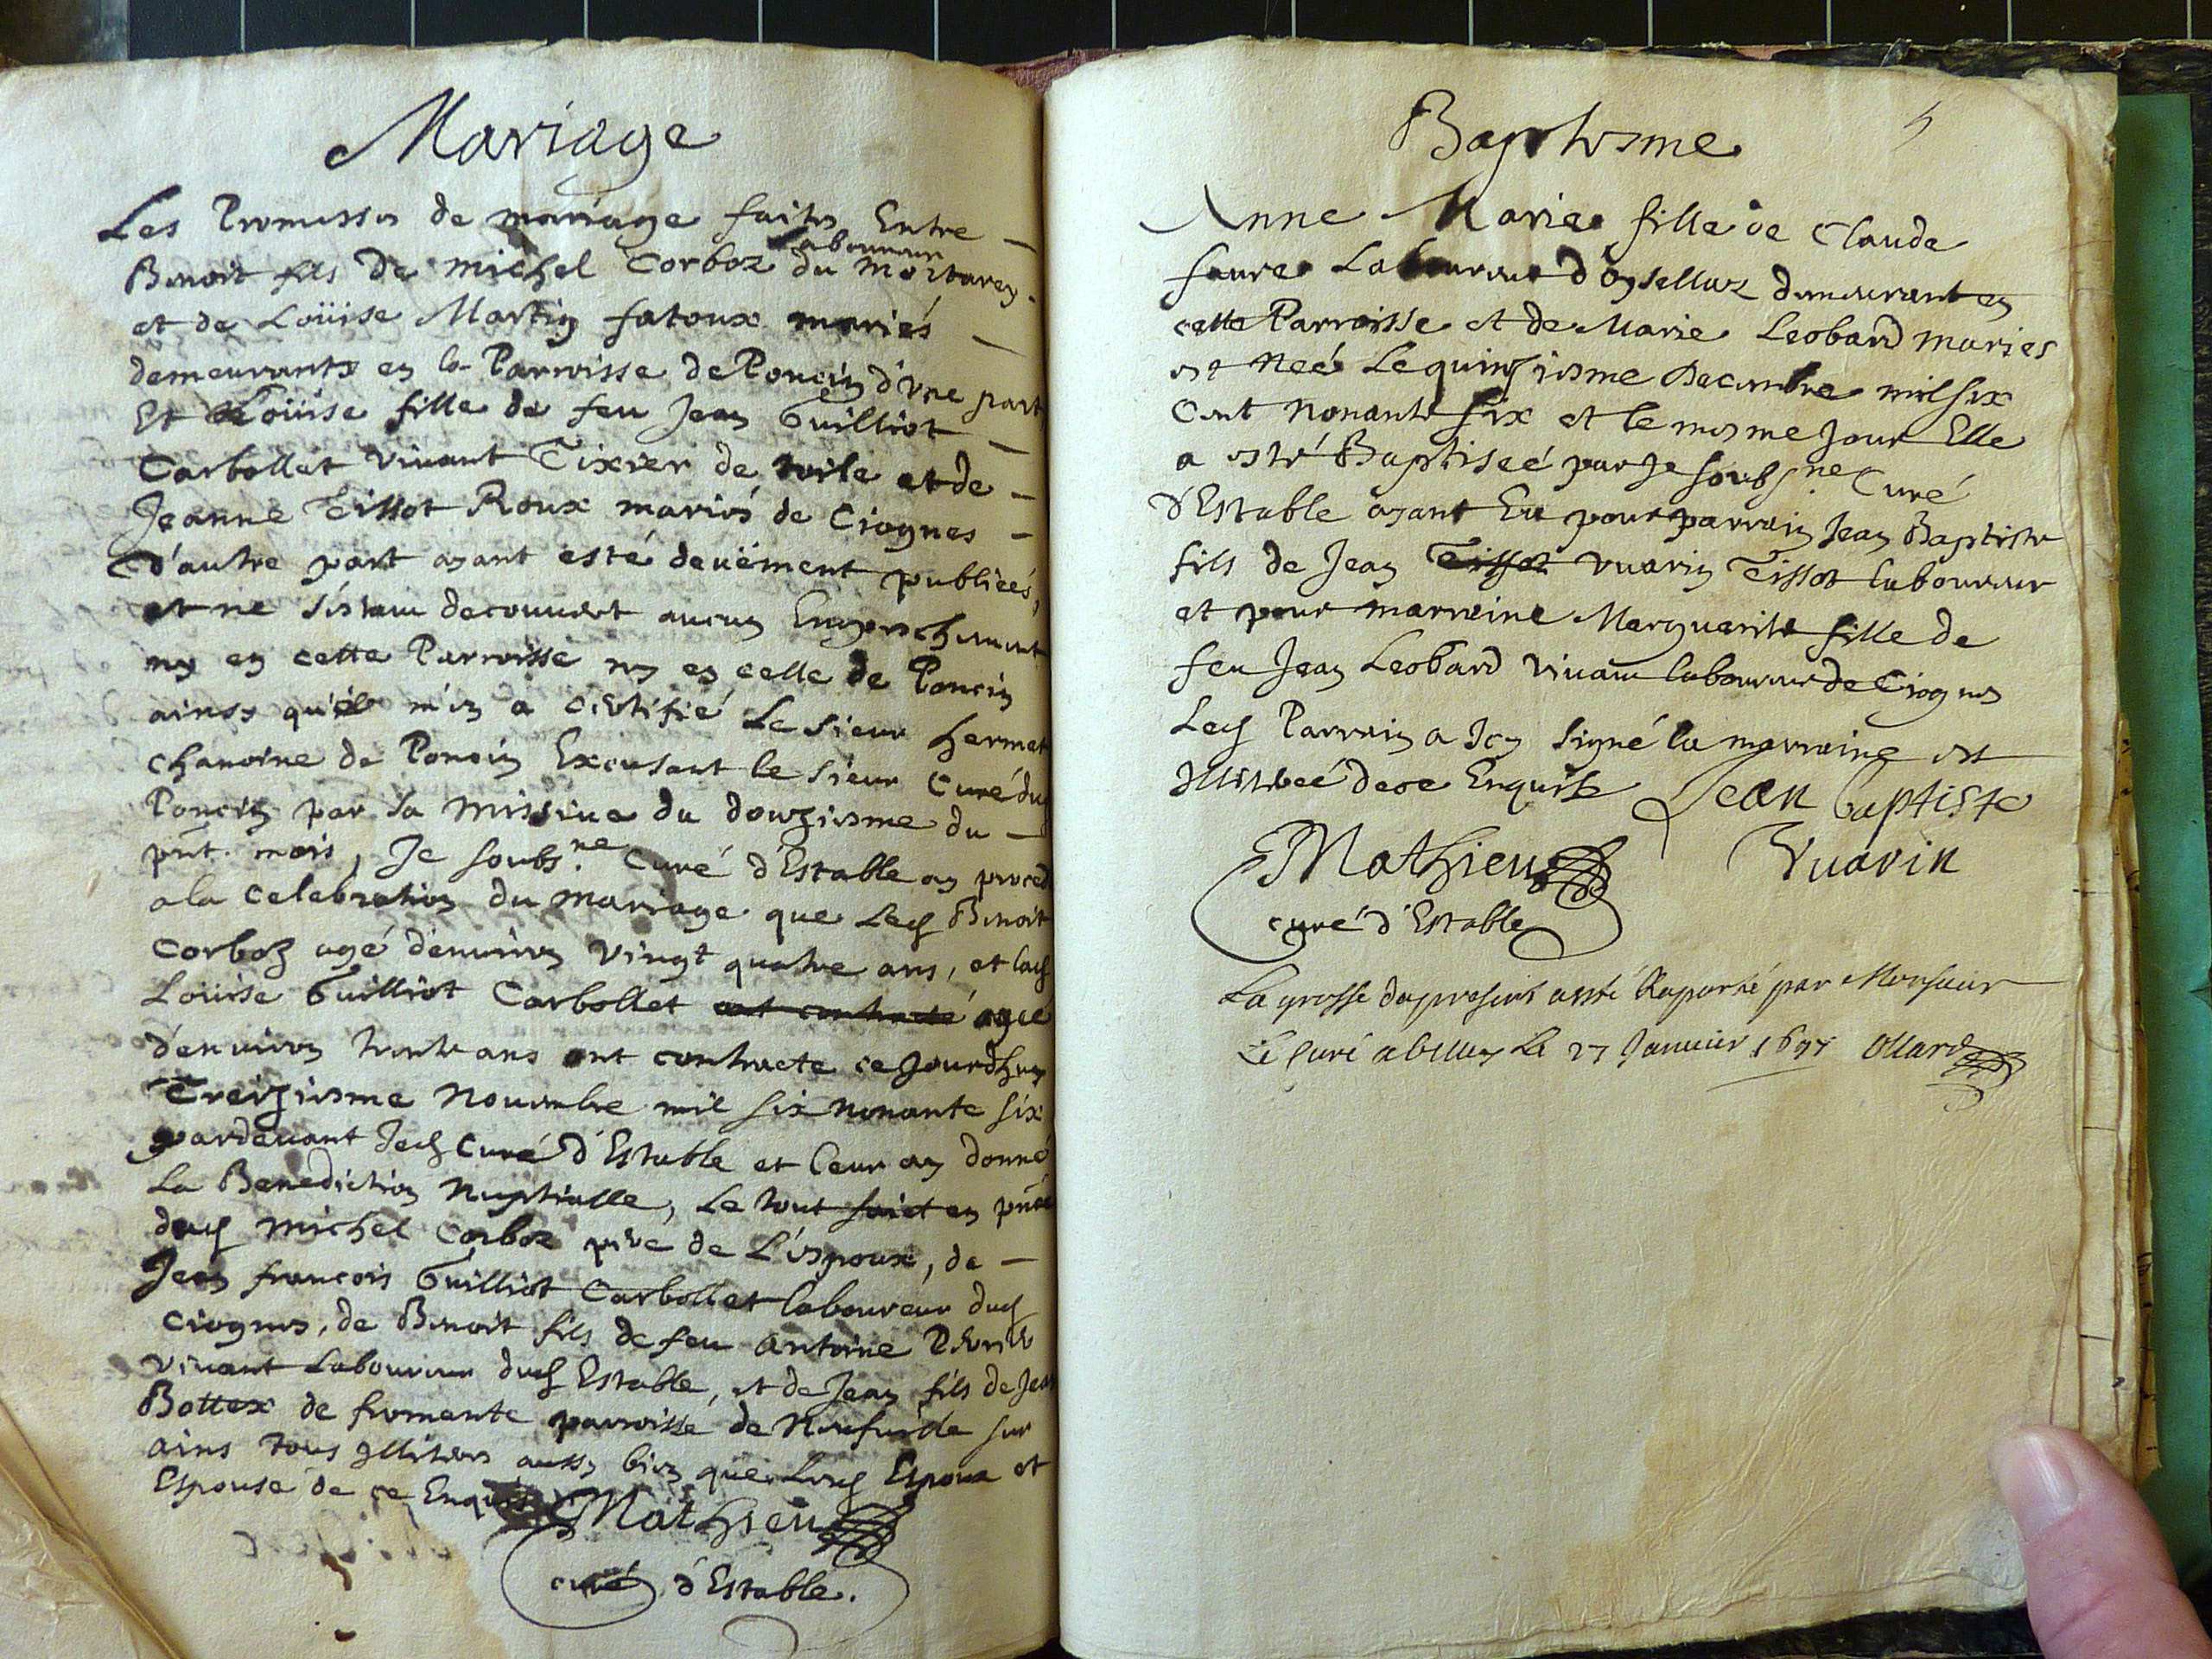 Mariage
Les Promesses de mariage faites Entre
Laboureur
Benoit fils de michel Corboz du mortarey
et de Loüise Martin fatoux mariés
demeurants en la Parroisse de Poncin d'vne part
Et Loüise fille de feu Jean Guilliot
Carbollet viuant Tixier de toile et de
Jeanne Tissot Roux mariés de Ciognes
d'autre part ayant esté deüement publiéés,
et ne s'estant decouuert aucun Empeschement
ny en cette Parroisse ny en celle de Poncin
ainsy qu'il m'en a certifié Le sieur hermet
chanoine de Poncin Excusant le sieur Curé dud
Poncin par sa missiue du douziesme du
pnt. mois, Je soubsne Curé d'Estable ay procedé
a la celebration du mariage que Led Benoit
Corboz agé denuiron vingt quatre ans, et lad
Loüise Guilliot Carbollet ont contracté ageé
d'enuiron trente ans ont contracte ce jourdhuy
Treiziesme Nouembre mil six nonante six
pardeuant Jed Curé d'Estable et leur ay donné
La Benediction Nuptialle, Le tout faict en pñce
dud michel Corboz pere de L'espoux, de
Jean francois Guilliot Carbollet laboureur dud
Ciognes, de Benoit fils de feu antoine
viuant Laboureur dud Estable, et de Jean fils de Jean
Bottex de fromente parroisse de Neufuille sur
ains tous jlliteres aussy bien que Lesd Espoux et
Espouse de ce Enquis Mathieu
curé d'Estable.
Baptesme
5
Anne Marie fille de Claude
faure Laboureur d'oysellaz demeurant en
cette Parroisse et de Marie Leobard maries
est Neé Le quinziesme Decembre mil six
Cent Nonante six et le mesme jour Elle
a esté Baptiseé par Je soubsne Curé
d'Estable ayant Eu pour parrain Jean Baptiste
fils de Jean Tissot vuarin Tissot laboureur
et pour marreine Marguerite fille de
feu Jean Leobard viuant laboureur de Ciognes
Led Parrain a Icy signé la marraine est
jllitereé de ce Enquise Jean baptiste
Mathieu Vuarin
curé d'Estable
La grosse du present a esté Raporté par Monsieur
Le Curé a belley Le 27 Januier 1697 Ollard